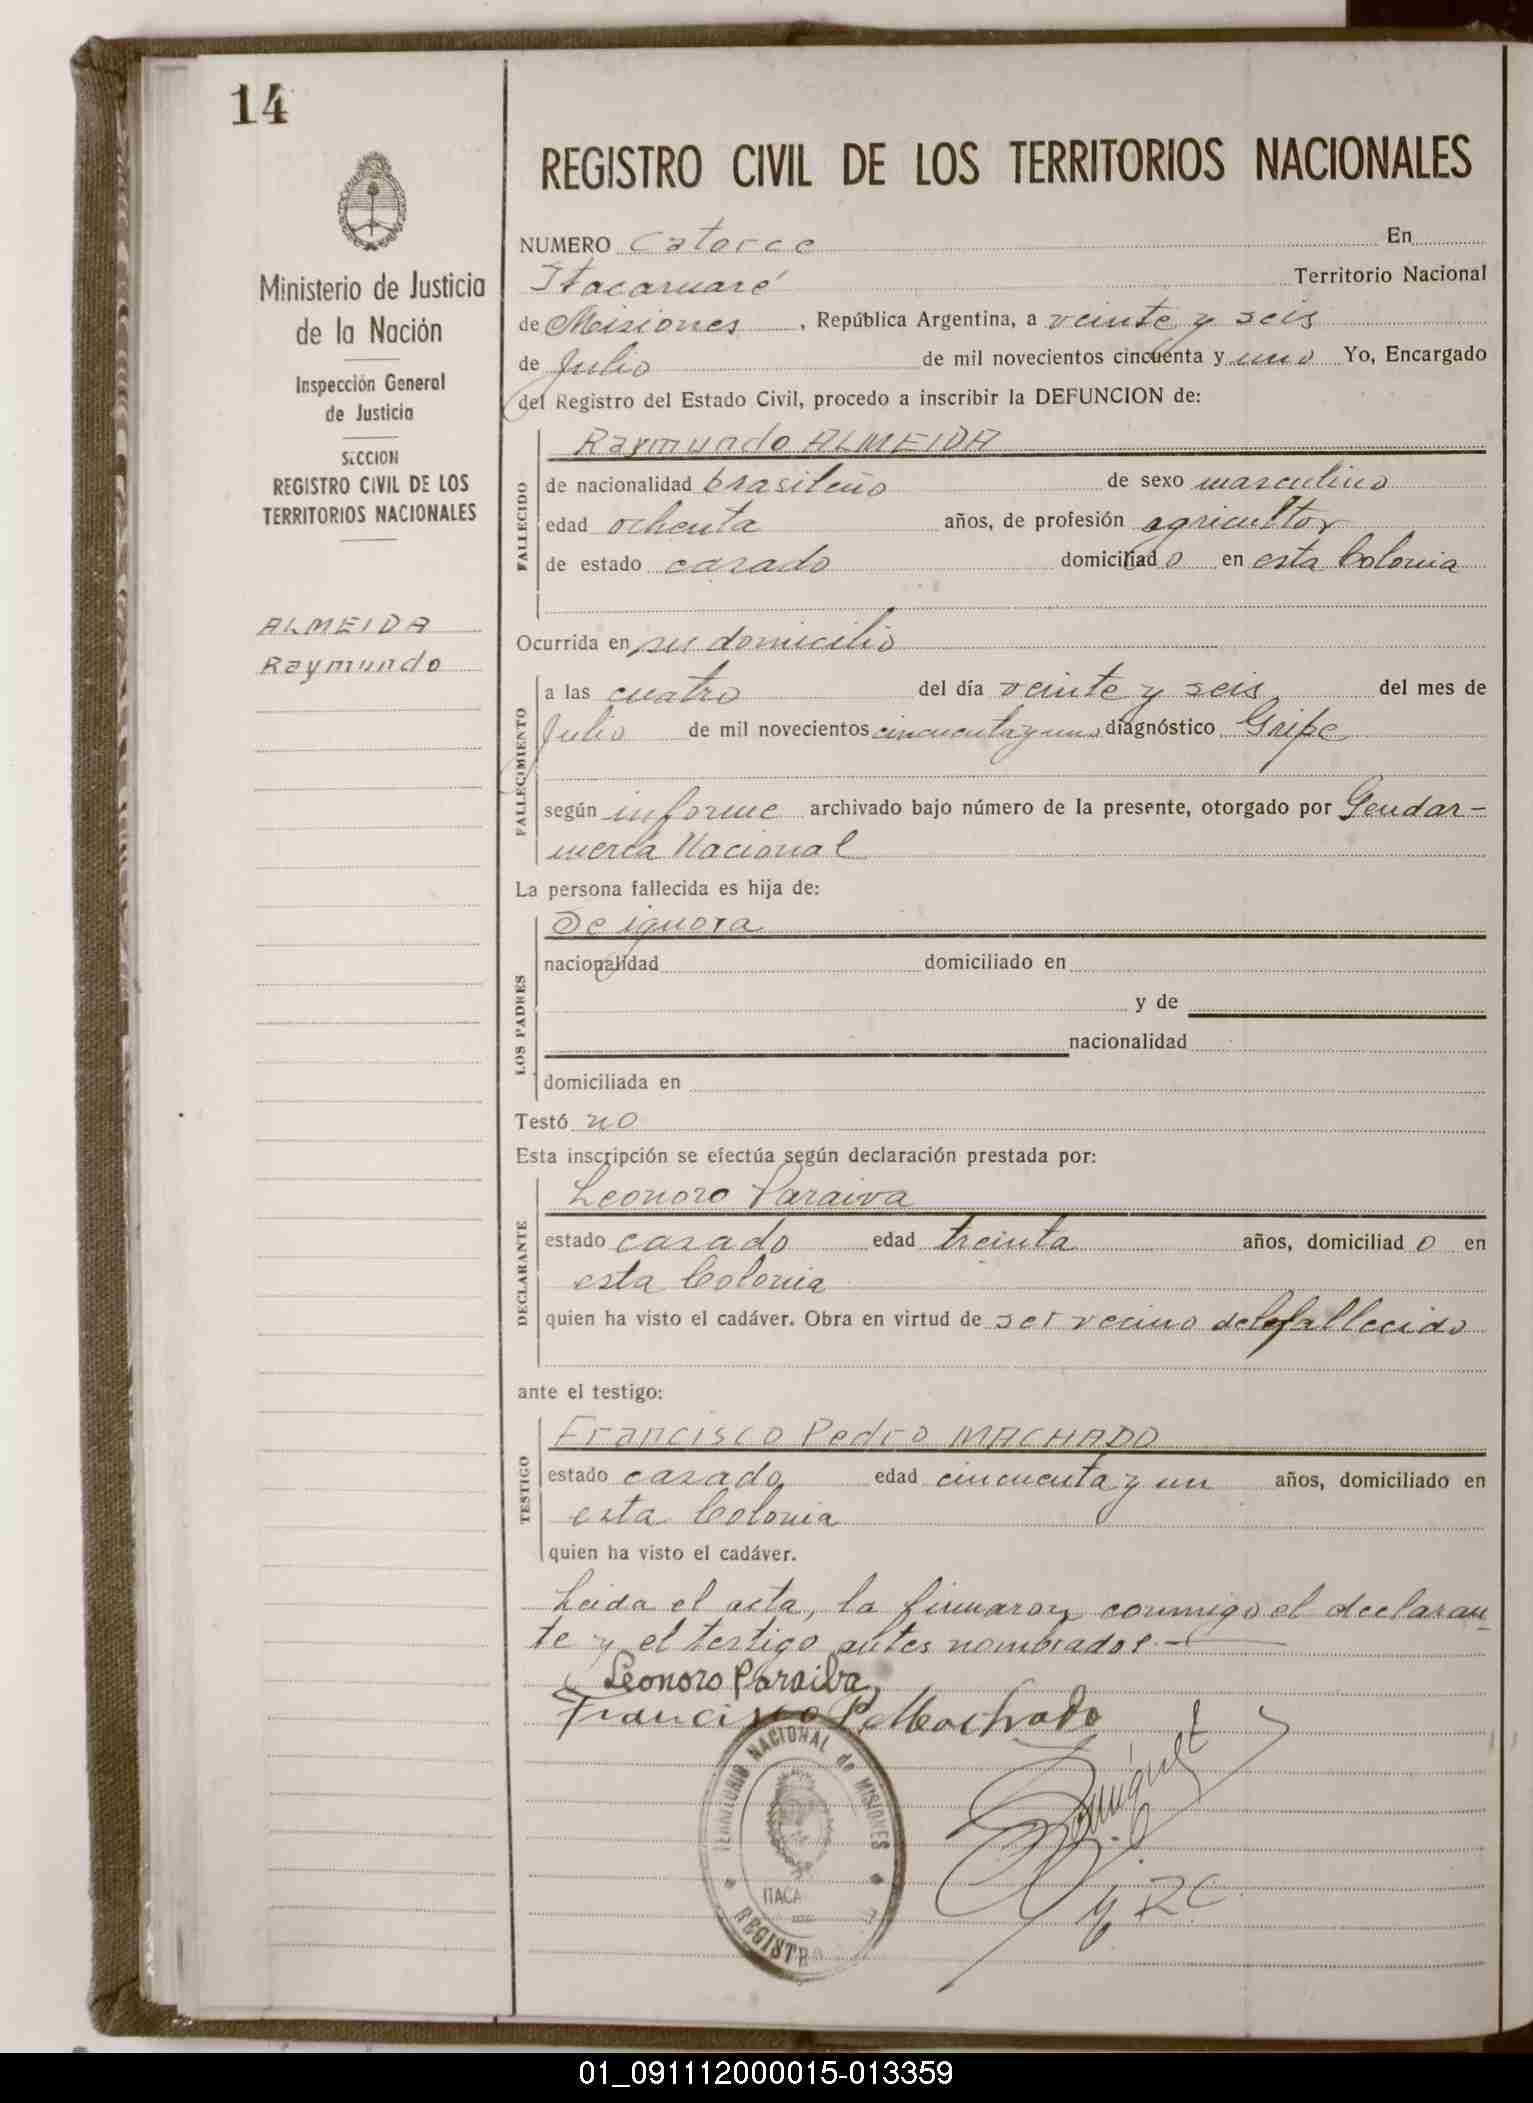 14
Ministerio de Justicia
de la Nación
Inspección General
de Justicia
SECCION
REGISTRO CIVIL DE LOS
TERRITORIOS NACIONALES
ALMEIDA
Raymundo
REGISTRO CIVIL DE LOS TERRITORIOS NACIONALES
NUMERO Catorce En
Itacaruaré Territorio Nacional
de Misiones, República Argentina, a veinte y seis
de Julio de mil novecientos cincuenta y uno Yo, Encargado
del Registro del Estado Civil, procedo a inscribir la DEFUNCION de:
FALLECIDO
Raymundo ALMEIDA
de nacionalidad brasileño de sexo masculino
edad ochenta años, de profesión agricultor
de estado casado domiciliado en esta Colonia
Ocurrida en su domicilio
FALLECIMIENTO
a las cuatro del día veinte y seis del mes de
Julio de mil novecientos cincuenta y uno diagnóstico Gripe
según informe archivado bajo número de la presente, otorgado por Gendar-
mería Nacional
La persona fallecida es hija de:
LOS PADRES
Se ignora
nacionalidad domiciliado en
y de
nacionalidad
domiciliada en
Testó no
Esta inscripción se efectúa según declaración prestada por:
DECLARANTE
Leonoro Paraiva
estado casado edad treinta años, domiciliado en
esta Colonia
quien ha visto el cadáver. Obra en virtud de ser vecino del fallecido
ante el testigo:
TESTIGO
Francisco Pedro MACHADO
estado casado edad cincuenta y un años, domiciliado en
esta Colonia
quien ha visto el cadáver.
Leida el acta, la firmaron conmigo el declaran-
te y el testigo antes nombrados.-
Leonoro Paraiba
Francisco P. Machado
TERRITORIO NACIONAL de MISIONES
ITACA
REGISTRO
01_091112000015-013359